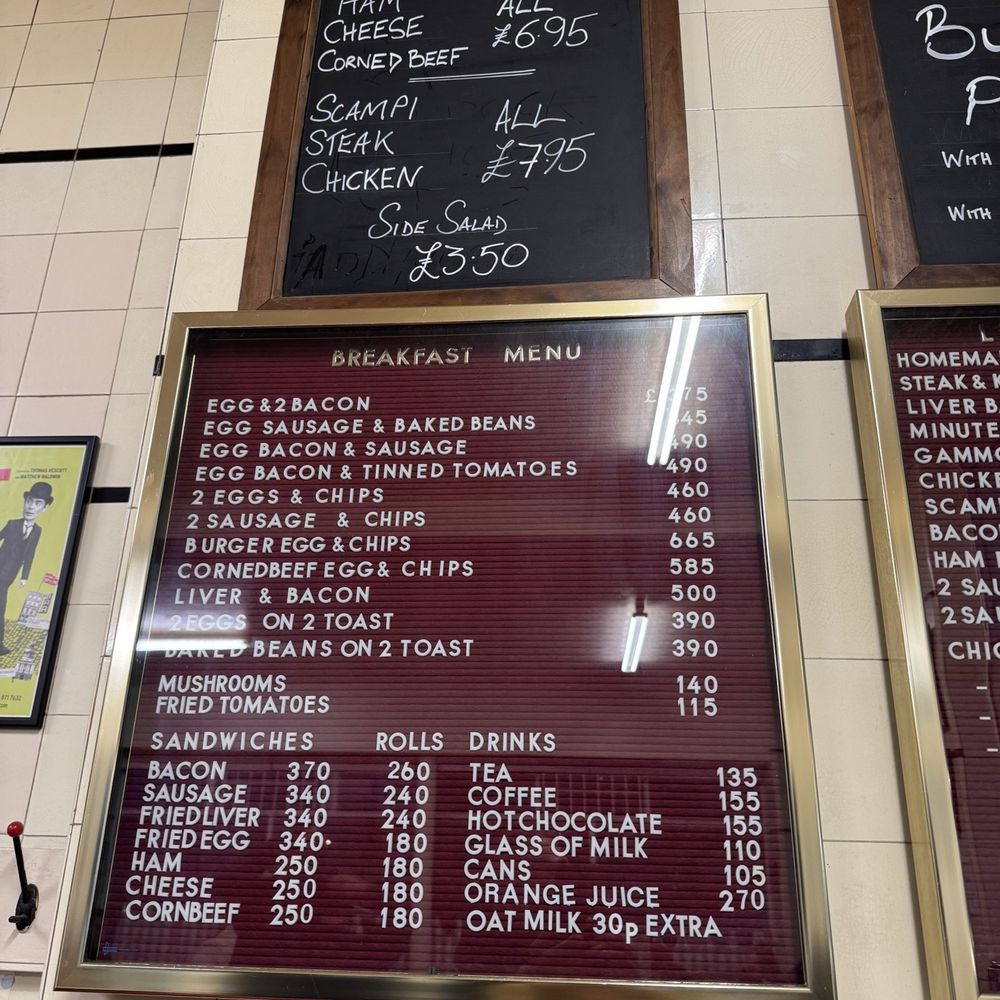 HAM ALL
CHEESE £6.95
CORNED BEEF
SCAMPI ALL
STEAK £7.95
CHICKEN
SIDE SALAD
£3.50
WITH
WITH
BREAKFAST MENU
EGG & 2 BACON
EGG SAUSAGE & BAKED BEANS
EGG BACON & SAUSAGE 490
EGG BACON & TINNED TOMATOES 490
2 EGGS & CHIPS 460
2 SAUSAGE & CHIPS 460
BURGER EGG & CHIPS 665
CORNEDBEEF EGG & CHIPS 585
LIVER & BACON 500
2 EGGS ON 2 TOAST 390
BAKED BEANS ON 2 TOAST 390
MUSHROOMS 140
FRIED TOMATOES 115
SANDWICHES ROLLS DRINKS
BACON 370 260 TEA 135
SAUSAGE 340 240 COFFEE 155
FRIED LIVER 340 240 HOT CHOCOLATE 155
FRIED EGG 340. 180 GLASS OF MILK 110
HAM 250 180 CANS 105
CHEESE 250 180 ORANGE JUICE 270
CORNBEEF 250 180 OAT MILK 30p EXTRA
HOMEMA
STEAK & K
LIVER B
MINUTE
GAMMO
CHICKE
SCAM
BACO
HAM
2 SAU
2 SA
CHIC
THOMAS MCSCOTT
MATTHEW BALDWIN
871 7632